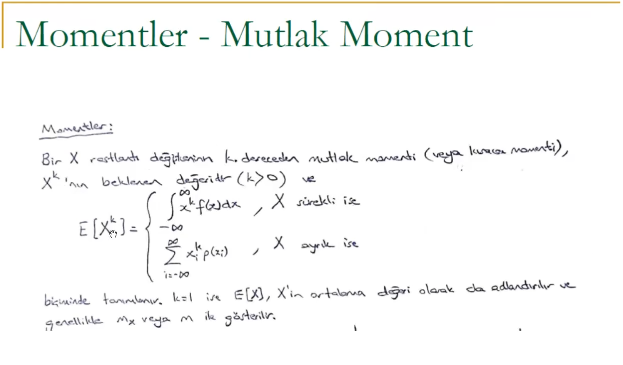 Momentler - Mutlak Moment
Momentler:
Bir X rastlantı değişkeninin k. dereceden mutlak momenti (veya kısaca momenti),
X^k 'nın beklenen değeridir (k>0) ve
E[X^k] = { ∫_{-∞}^{∞} x^k f(x)dx , X sürekli ise
∑_{i=-∞}^{∞} x_i^k p(x_i) , X ayrık ise
biçiminde tanımlanır. k=1 ise E[X], X'in ortalama değeri olarak da adlandırılır ve
genellikle m_x veya m ile gösterilir.